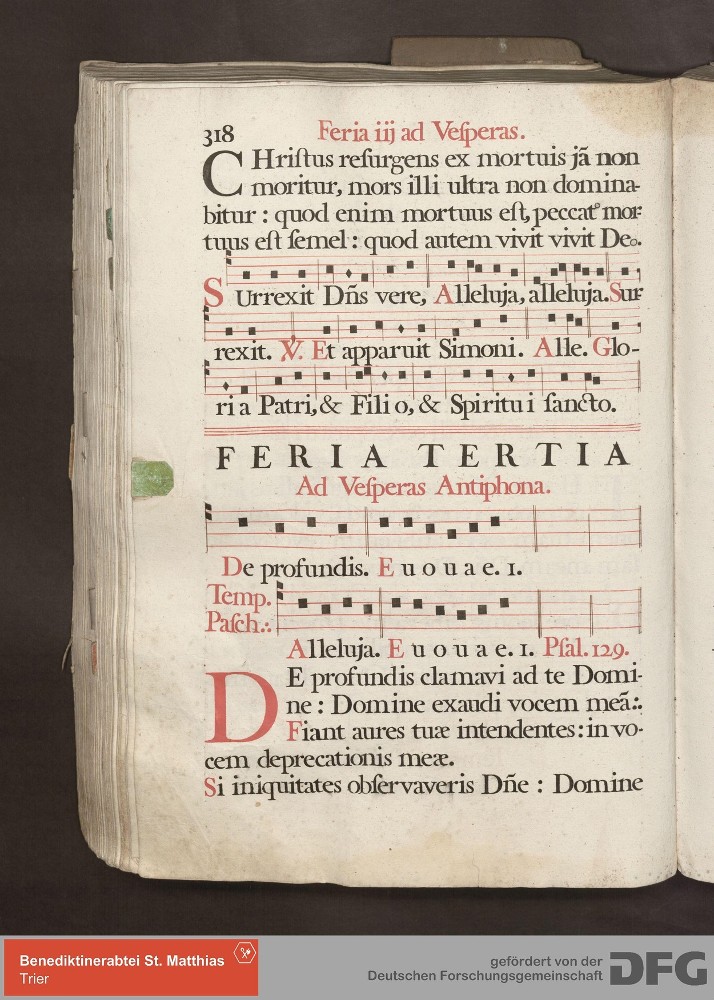 318 Feria iij ad Veſperas.
CHriſtus reſurgens ex mortuis jã non
moritur, mors illi ultra non domina-
bitur : quod enim mortuus eſt, peccatº mor-
tuus eſt ſemel : quod autem vivit vivit Deo.
SUrrexit Dñs vere, Alleluja, alleluja. Sur-
rexit. V. Et apparuit Simoni. Alle. Glo-
ri a Patri, & Fili o, & Spiritu i ſancto.
FERIA TERTIA
Ad Veſperas Antiphona.
De profundis. E u o u a e. 1.
Temp.
Paſch.:.
Alleluja. E u o u a e. 1. Pſal. 129.
DE profundis clamavi ad te Domi-
ne : Domine exaudi vocem meã:.
Fiant aures tuæ intendentes : in vo-
cem deprecationis meæ.
Si iniquitates obſervaveris Dñe : Domine
Benediktinerabtei St. Matthias
Trier
gefördert von der
Deutschen Forschungsgemeinschaft DFG